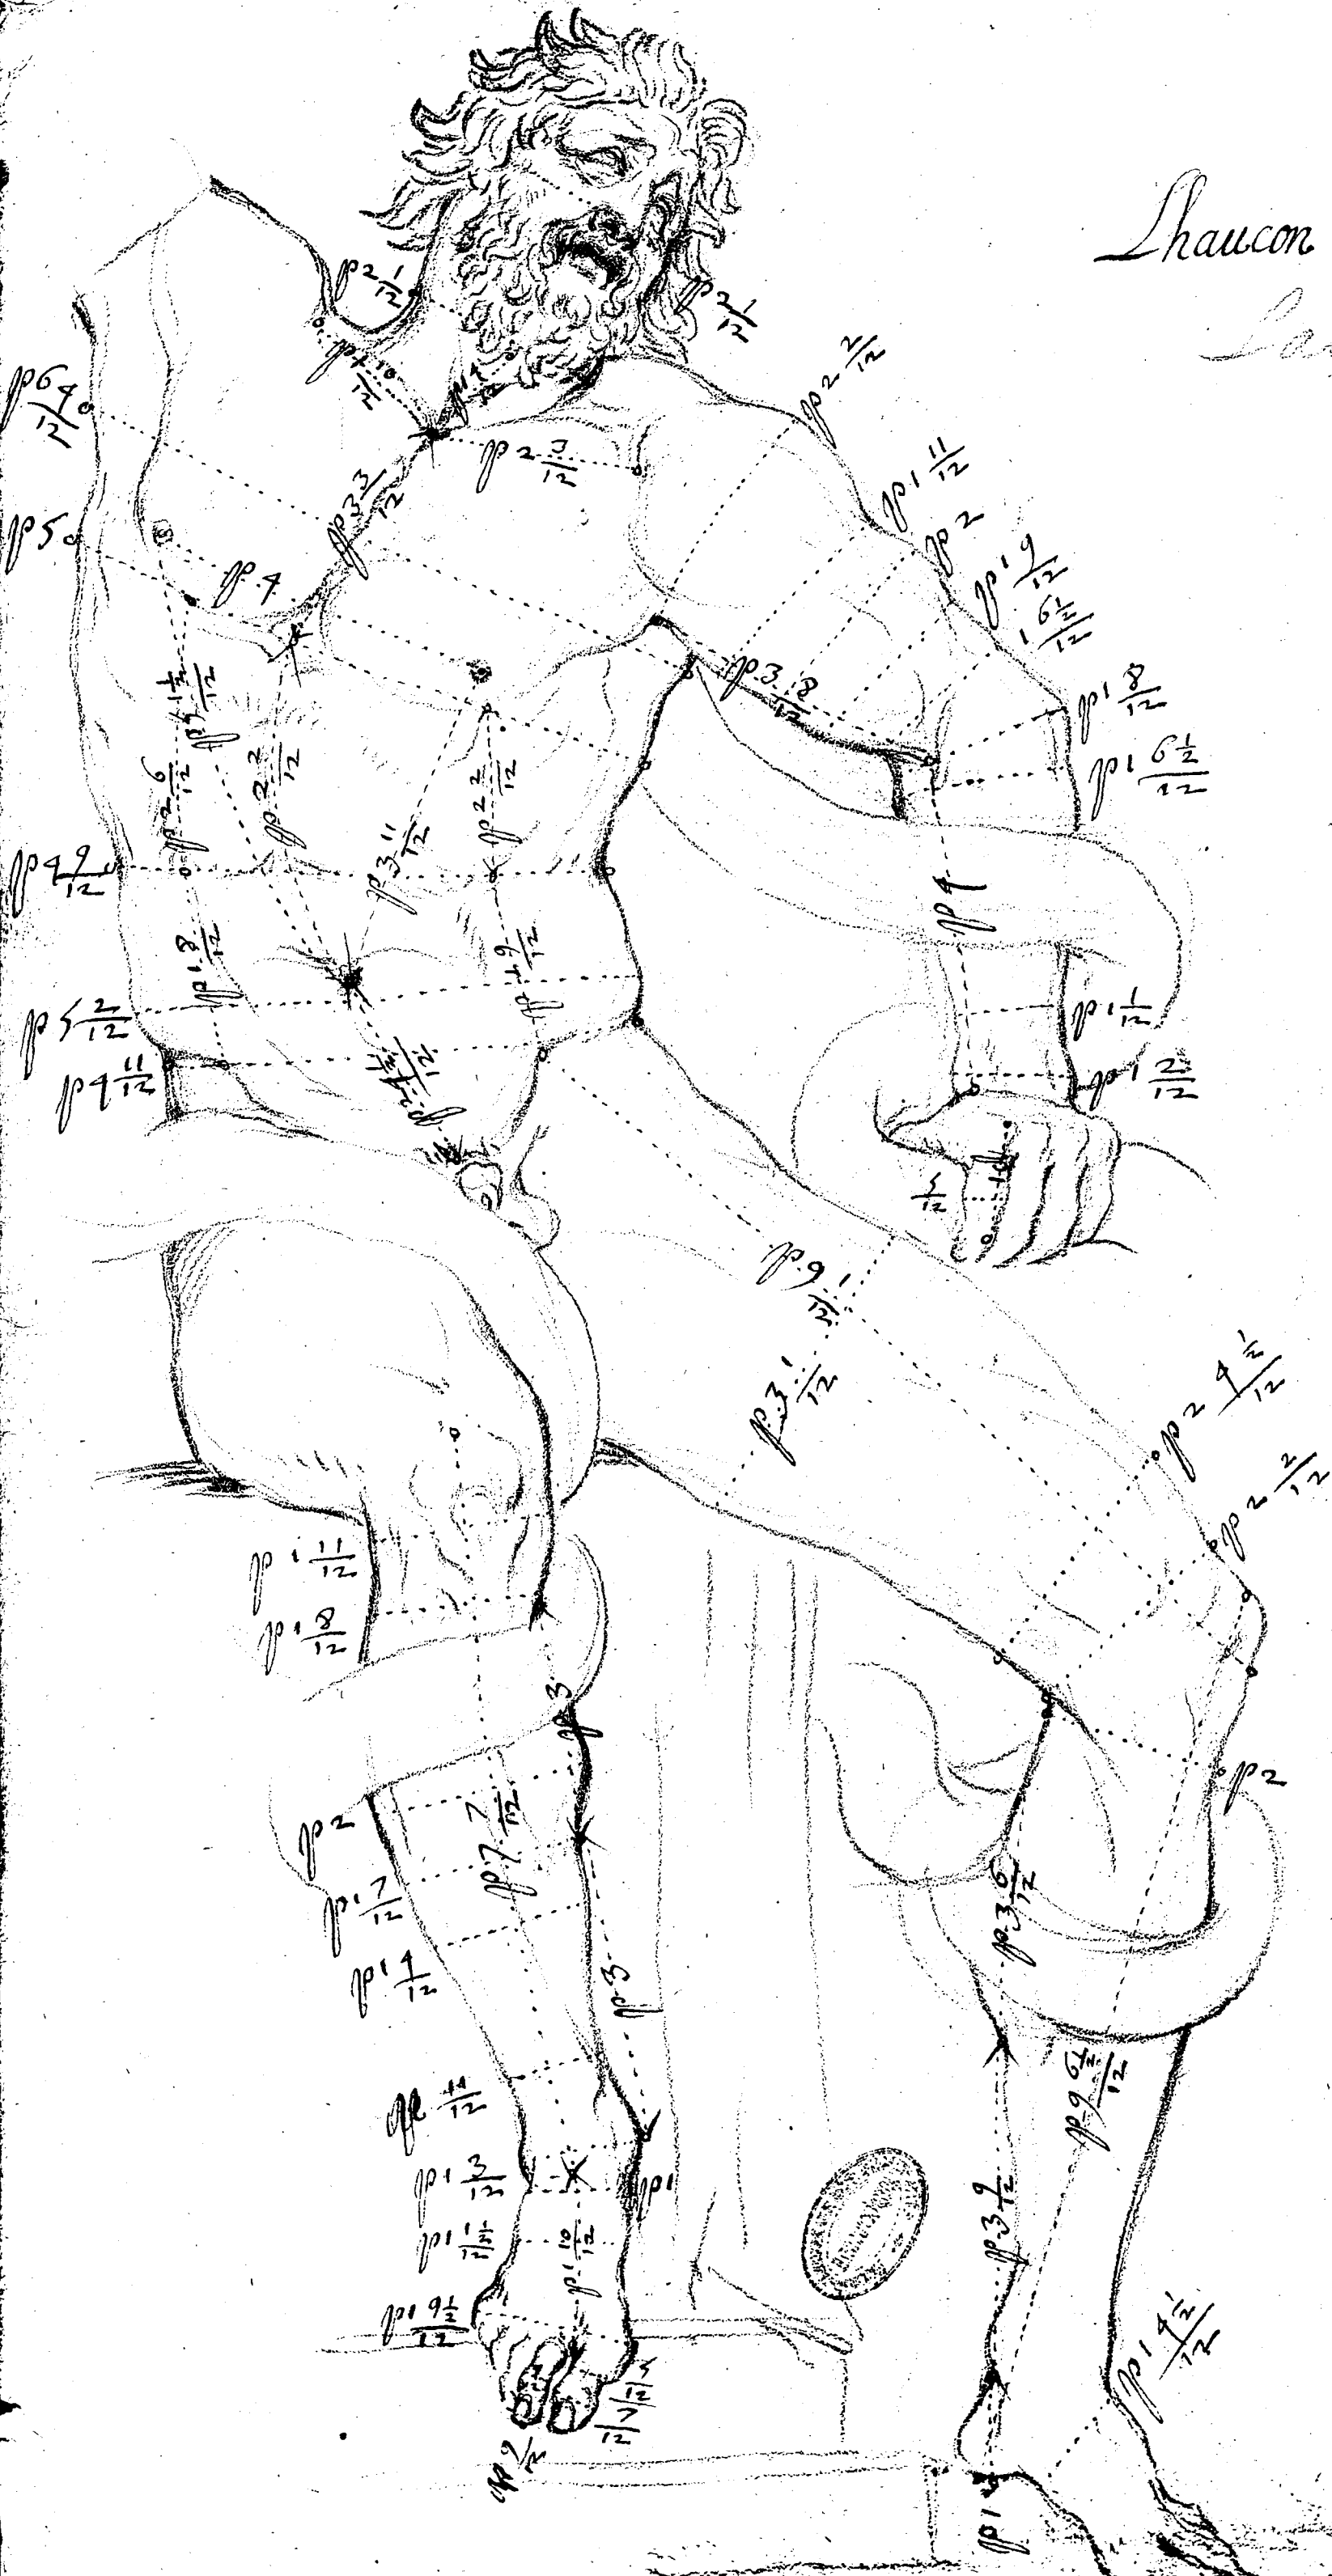 Lhaucon
La
p 2 1/12
p 2 1/12
p 2 2/12
p 6 4/12
p 1 10/12
p 2 3/12
p 1 11/12
p 3 3/12
p 5
p 2
p 4
p 1 9/12
1 6½/12
p 3 8/12
p 1 8/12
p 1 6½/12
p 2 6/12
p 2 2/12
p 2 2/12
p 3 11/12
p 4 9/12
p 4
p 1 8/12
p 1 9/12
p 5 2/12
p 1 1/12
p 4 11/12
p 1 2/12
5/12
p 9 1/12
p 3 1/12
p 2 4½/12
p 2 2/12
p 1 11/12
p 1 8/12
p 3
p 2
p 2
p 7 7/12
p 1 7/12
p 3 6/12
p 1 4/12
p 3
p 9 6½/12
11/12
p 1 3/12
p 1
p 3 9/12
p 1 10/12
p 1 6½/12
p 1 4½/12
5/12
7/12
p 9/12
p 1